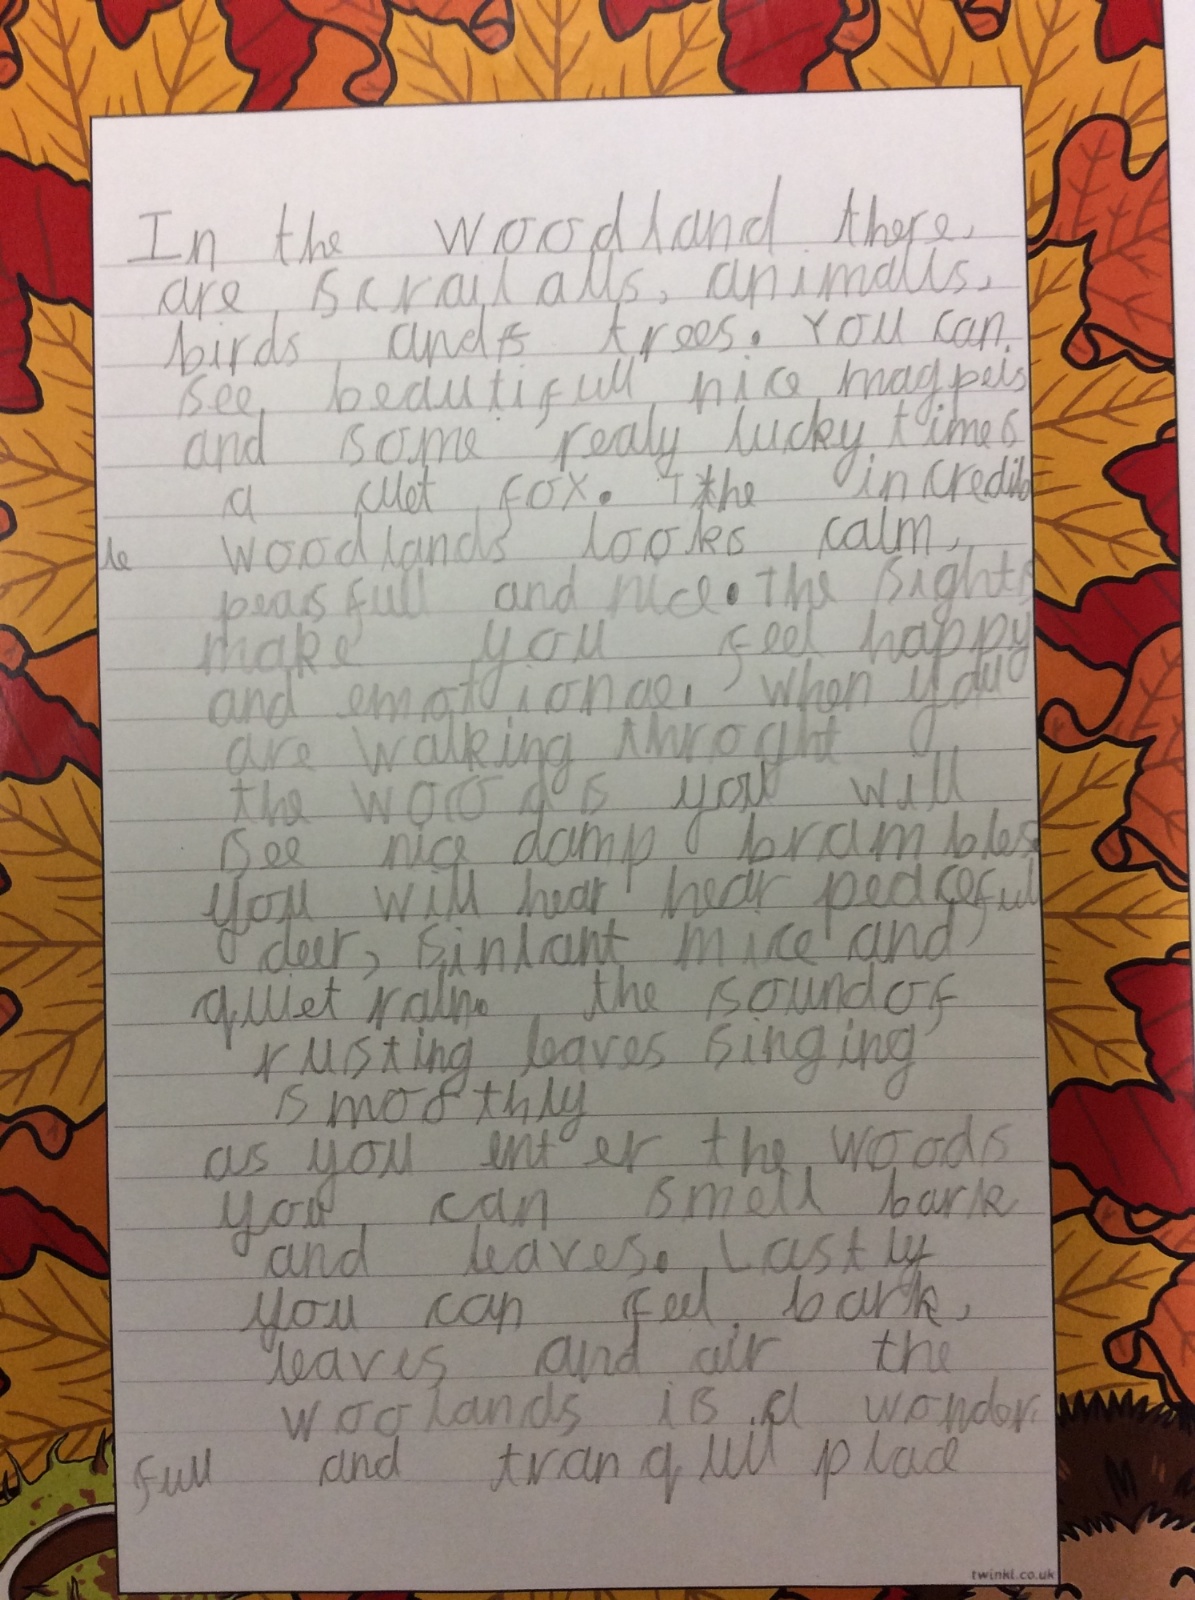 In the woodland there,
are scrailalls, animalls,
birds ands trees. You can
see beautifull nice magpeis
and some realy lucky times
a fox. The incredib
le woodlands looks calm,
peasfull and nice. the sights
make you feel happy
and emotionae. when you
are walking throght
the woods you will
see nice damp brambles
you will hear hear peaceful
deer, sinlant mice and
quiet rain. the sound of
rusting leaves singing
smoothly
as you enter the woods
you can smell bark
and leaves. Lastly
you can feel bark,
leaves and air the
woolands is a wonder
full and tranquill place
twinkl.co.uk